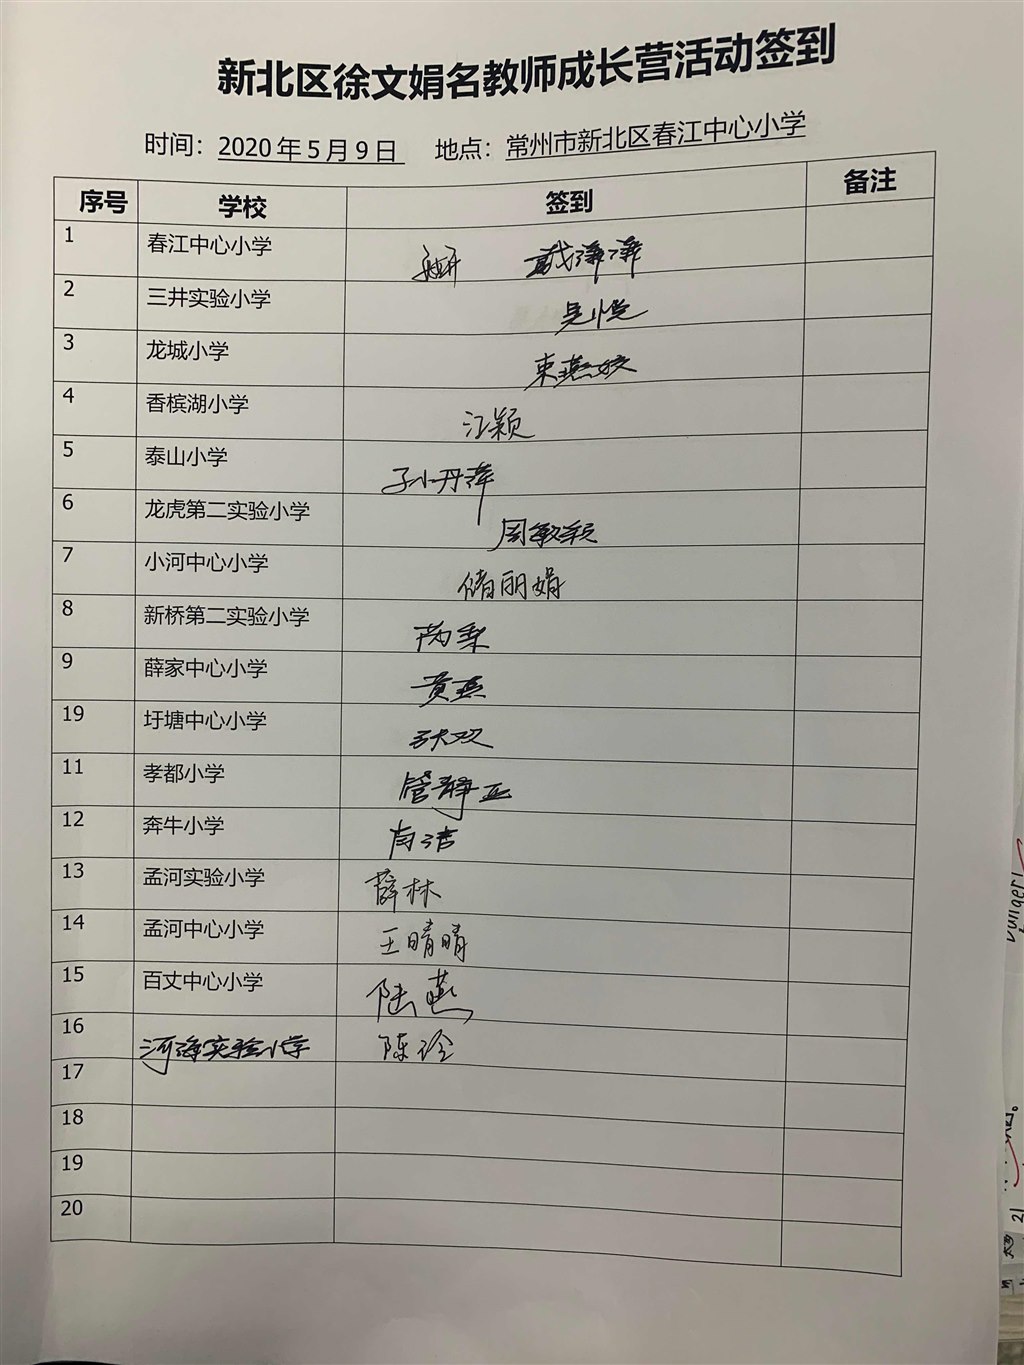 新北区徐文娟名教师成长营活动签到
时间：2020年5月9日 地点：常州市新北区春江中心小学
序号 学校 签到 备注
1 春江中心小学
2 三井实验小学 吴悦
3 龙城小学 束燕姣
4 香槟湖小学 江颖
5 泰山小学 孙丹萍
6 龙虎第二实验小学 周敏颖
7 小河中心小学 储丽娟
8 新桥第二实验小学
9 薛家中心小学 黄燕
19 圩塘中心小学 张双
11 孝都小学 管静亚
12 奔牛小学 南洁
13 孟河实验小学 薛林
14 孟河中心小学 王晴晴
15 百丈中心小学 陆燕
16 河海实验小学 陈玲
17
18
19
20